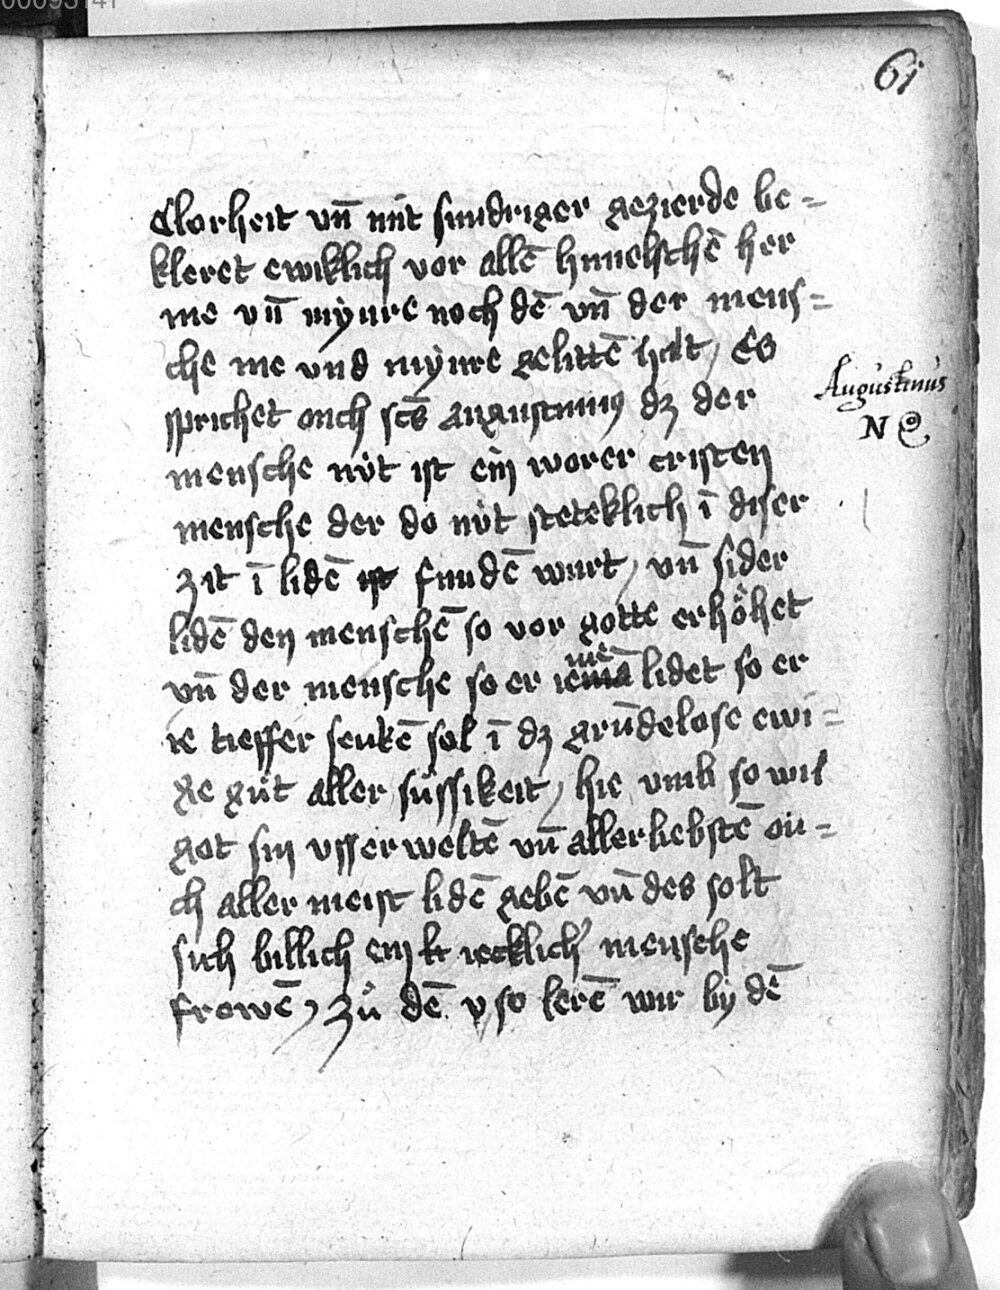 00093141
61
Clorheit vn̄ mit sundriger gezierde be=
kleret ewiklich vor allē himelschē her
me vn̄ mÿnre noch dē vn̄ der mens=
che me vnd mÿnre gelittē hat / Es
sprichet ouch scs̄ augustinus dz der
Augustinus
N
mensche nüt ist ein worer cristen
mensche der do nüt steteklich ī diser
zit ī lidē ist fundē wurt / vn̄ sider
lidē den menschē so vor gotte erhöhet
me
vn̄ der mensche so er iemā lidet so er
ie tieffer senkē sol ī dz grūdelose ewi=
ge gůt aller süssikeit / hie vmb so wil
got sin vsserweltē vn̄ allerliebstē ou=
ch aller meist lidē gebē vn̄ des solt
sich billich ein iecklich' mensche
frowē / Zů dē v so lerē wir bÿ dē